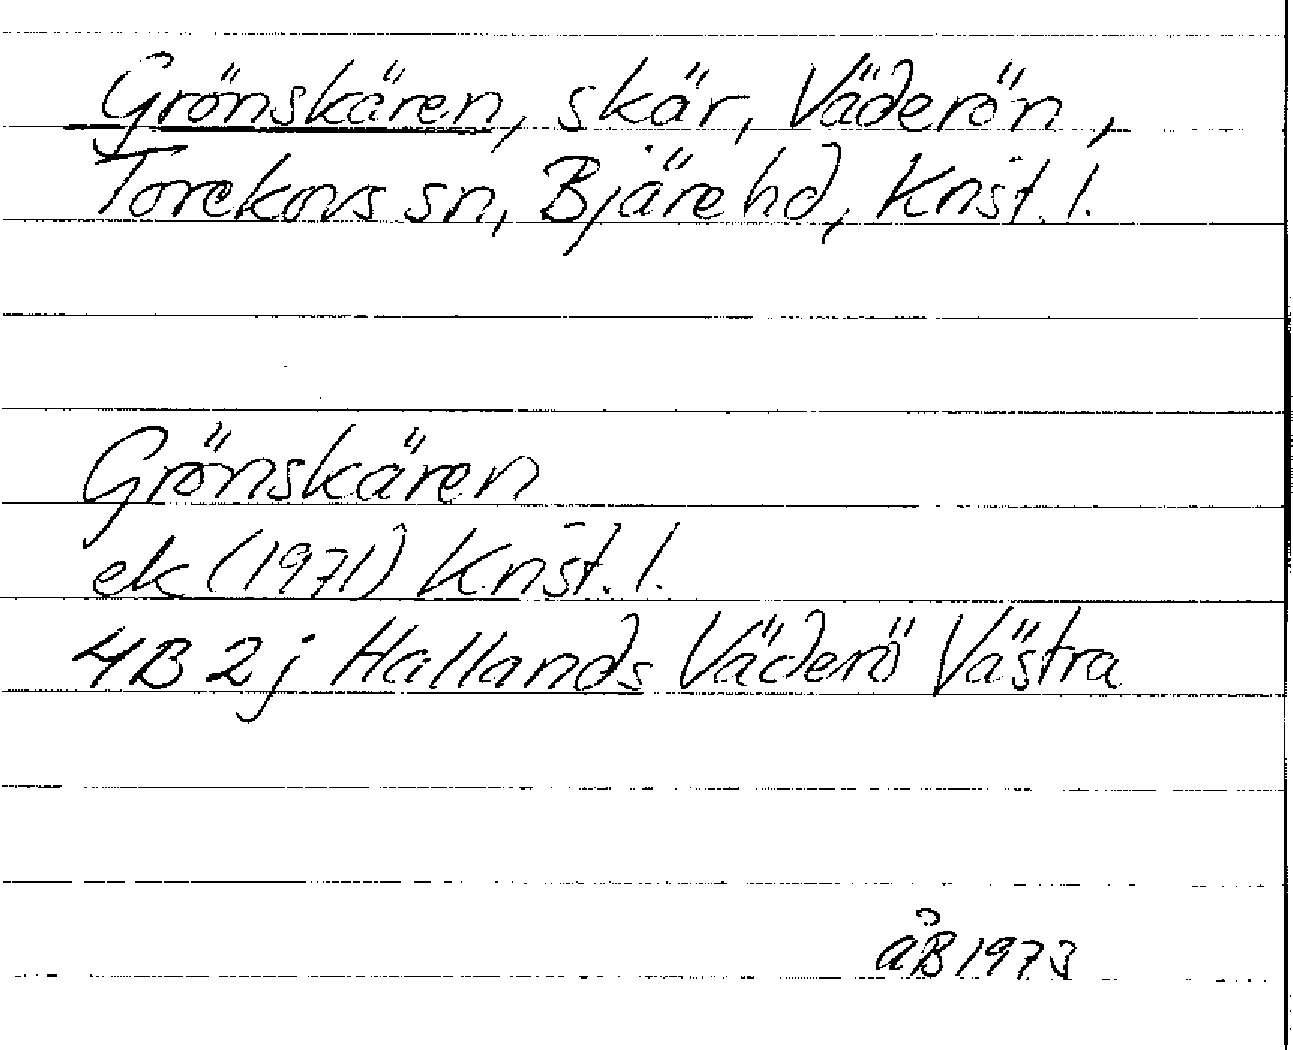 Grönskären, skär, Väderön,
Torekovs sn, Bjäre hd, Krist. l.
Grönskären
ek (1971) Krist. l.
4B 2j Hallands Väderö Västra
åB 1973